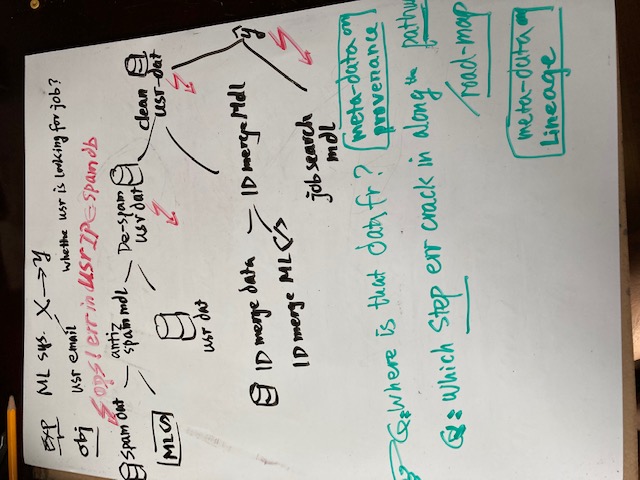 Exp ML sys. X → Y
obj usr email whethe usr is looking for job?
ops! err in usr IP ∈ spam db
Spam dat antiz spam mdl De-spam usr dat clean usr-dat
ML</>
usr dat
ID merge data ID merge Mdl ŷ
ID merge ML </>
job search mdl
Q: Where is that data fr? meta-data on provenance
Q: which step err crack in along the pathw
/road-map
meta-data on Lineage